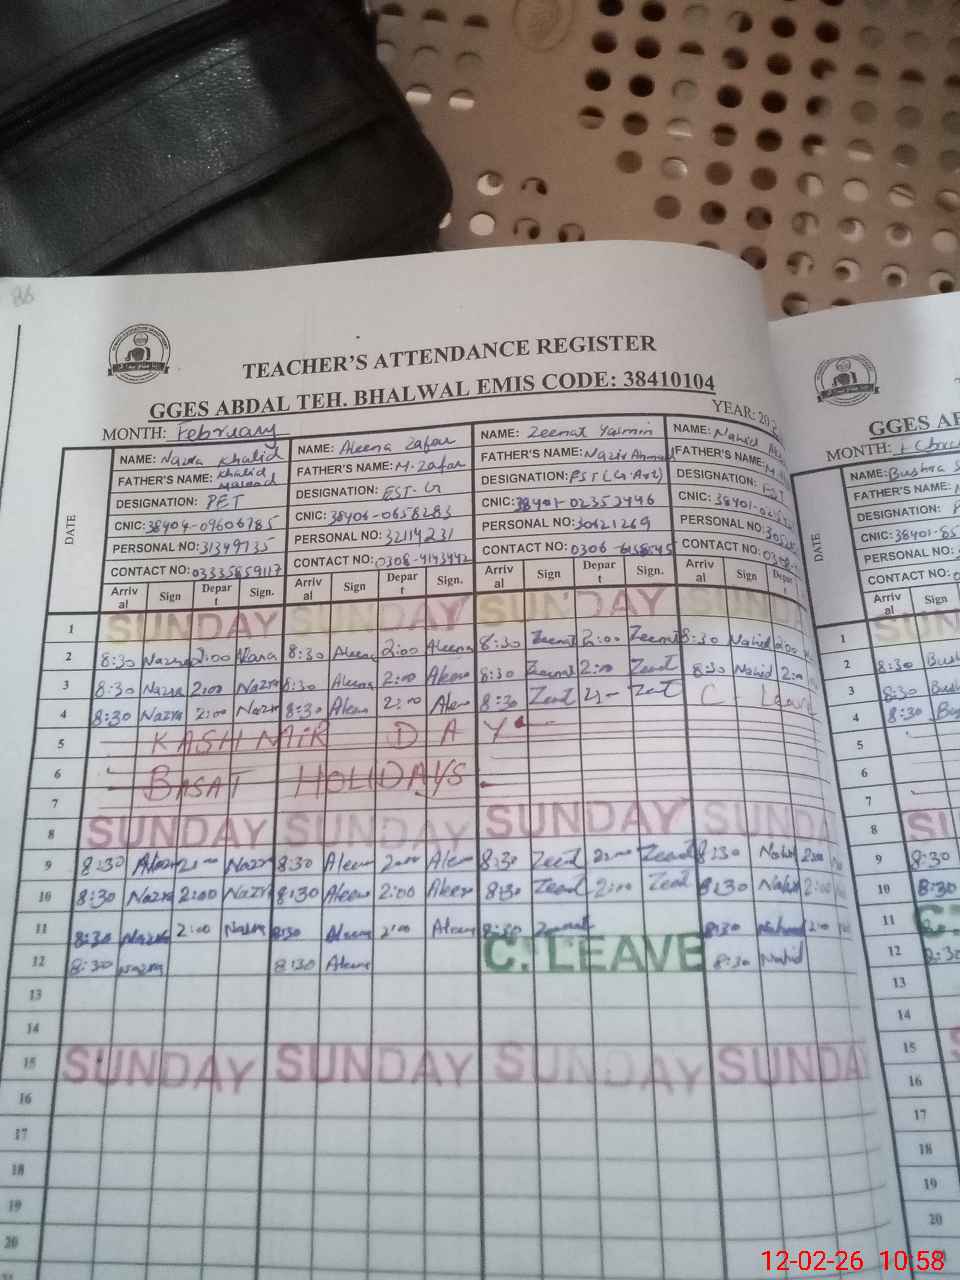 TEACHER'S ATTENDANCE REGISTER
GGES ABDAL TEH. BHALWAL EMIS CODE: 38410104
MONTH: February YEAR: 20
DATE
NAME: Nazra Khalid NAME: Aleena Zafar NAME: Zeenat Yasmin NAME: Nahid
FATHER'S NAME: Khalid FATHER'S NAME: M. Zafar FATHER'S NAME: Nazir Ahmad FATHER'S NAME:
DESIGNATION: PET DESIGNATION: EST-G DESIGNATION: EST (G. Art) DESIGNATION:
CNIC: 38404-09606785 CNIC: 38404-0658283 CNIC: 38401-02353446 CNIC: 38401-
PERSONAL NO: 31349735 PERSONAL NO: 32114231 PERSONAL NO: 30621269 PERSONAL NO:
CONTACT NO: 03335859117 CONTACT NO: 0308-4143442 CONTACT NO: 0306- CONTACT NO:
Arrival Sign Depart Sign. Arrival Sign Depart Sign. Arrival Sign Depart Sign. Arrival Sign Depart
1 SUNDAY SUNDAY SUNDAY SUNDAY
2 8:30 Nazra 2:00 Nazra 8:30 Aleena 2:00 Aleena 8:30 Zeenat 2:00 Zeenat 8:30 Nahid 2:00
3 8:30 Nazra 2:00 Nazra 8:30 Aleena 2:00 Aleena 8:30 Zeenat 2:00 Zeenat 8:30 Nahid 2:00
4 8:30 Nazra 2:00 Nazra 8:30 Aleena 2:00 Aleena 8:30 Zeenat 2:00 Zeenat C- Leave
5 KASHMAIR DAY
6 BASAT HOLIDAYS
7
8 SUNDAY SUNDAY SUNDAY SUNDA
9 8:30 2:00 Nazra 8:30 Aleena 2:00 Aleena 8:30 Zeenat 2:00 Zeenat 8:30 Nahid 2:00
10 8:30 Nazra 2:00 Nazra 8:30 Aleena 2:00 Aleena 8:30 Zeenat 2:00 Zeenat 8:30 Nahid 2:00
11 8:30 Nazra 2:00 Nazra 8:30 Aleena 2:00 Aleena 8:30 Zeenat 8:30 Nahid 2:00
12 8:30 Nazra 8:30 Aleena C. LEAVE 8:30 Nahid
13
14
15 SUNDAY SUNDAY SUNDAY SUNDAY
16
17
18
19
20
GGES
MONTH:
DATE
NAME: Bushra
FATHER'S NAME:
DESIGNATION:
CNIC: 38401-
PERSONAL NO:
CONTACT NO:
Arrival Sign
1 SUN
2 8:30
3 8:30
4 8:30
5
6
7
8 SU
9 8:30
10 8:30
11
12
13
14
15
16
17
18
19
20
12-02-26 10:58